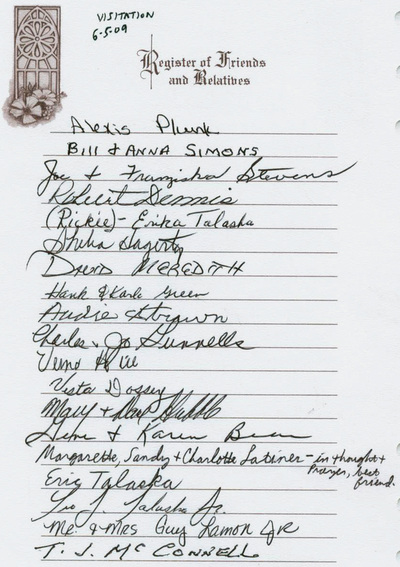 VISITATION
6-5-09
Register of Friends
and Relatives
Alexis Plunk
BILL & ANNA SIMONS
Joe & Franziska Stevens
Robert Dennis
(Rickie) - Erika Talaska
Hagerty
DAVID MEREDITH
Hank & Karla Green
Audie Strawn
Charles & Jo Gunnells
Verno Hill
Vista Dossey
Mary +
Gene & Karen
Margarette, Sandy + Charlotte Latimer - in thought +
Prayer, best
friend.
Eric Talaska
Leo J. Talaska Jr.
Mr. & Mrs Guy Lamon JR
T. J. McCONNELL